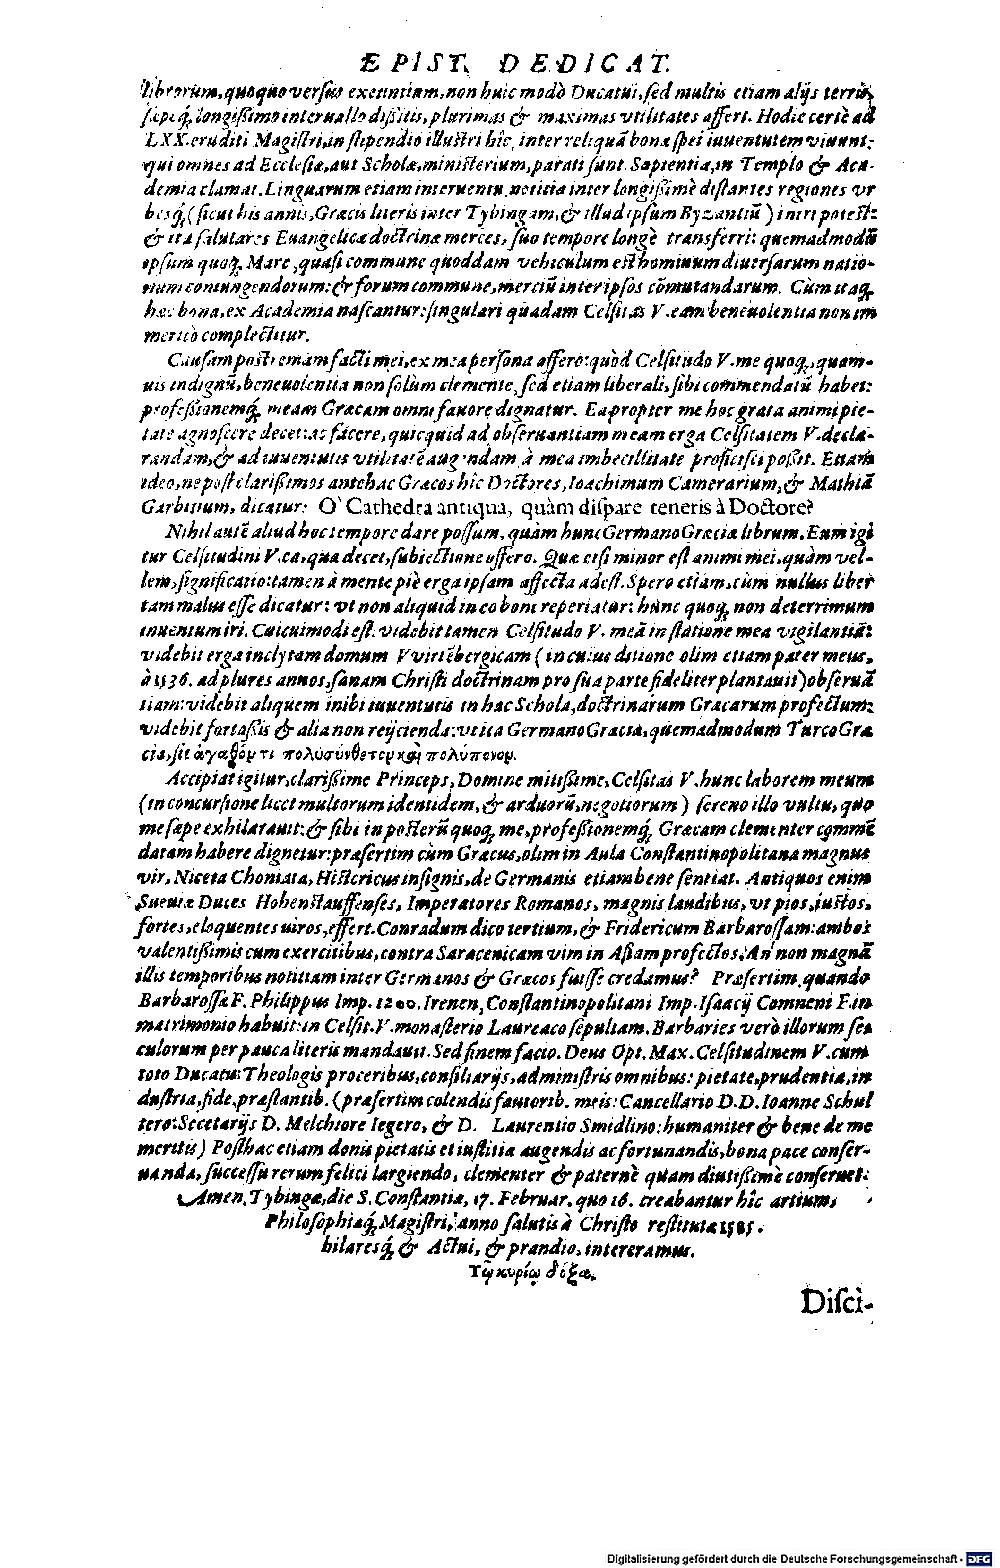 EPIST. DEDICAT.
librorum, quoquo versus exeuntium, non huic modò Ducatui, sed multis etiam alijs terris,
sæpeq́; longißimo interuallo dißitis, plurimas & maximas vtilitates affert. Hodie certè ad
LXX. eruditi Magistri, in stipendio illustri hîc, inter reliquā bonæ spei iuuentutem viuunt:
qui omnes ad Ecclesiæ, aut Scholæ, ministerium, parati sunt. Sapientia, in Templo & Aca-
demia clamat. Linguarum etiam interuentu, noticia inter longißimè distantes regiones vr
besq́; (sicut his annis, Græcis literis inter Tybingam, & illud ipsum Byzantiū) iniri potest:
& ita salutares Euangelicæ doctrinæ merces, suo tempore longè transferri: quemadmodū
ipsum quoq; Mare, quasi commune quoddam vehiculum est hominum diuersarum natio-
num coniungendorum: & forum commune, merciū inter ipsos cōmutandarum. Cùm itaq;
hæc bona, ex Academia nascantur: singulari quadam Celsitas V. eam beneuolentia non im
meritò complectitur.
Causam postremam facti mei, ex mea persona affero: quòd Celsitudo V. me quoq;, quam-
uis indignū, beneuolentia non solùm clemente, sed etiam liberali, sibi commendatū habet:
professionemq́; meam Græcam omni fauore dignatur. Eapropter me hoc grata animi pie-
tate agnoscere decet: ac facere, quicquid ad obseruantiam meam erga Celsitatem V. decla-
randam, & ad iuuentutis vtilitatē augendam, à mea imbecillitate proficisci poßit. Etiam
ideo, ne post clarißimos antehac Græcos hic Doctores, Ioachimum Camerarium, & Mathiā
Garbitium, dicatur: O' Cathedra antiqua, quàm dispare teneris à Doctore?
Nihil autē aliud hoc tempore dare possum, quàm hunc GermanoGræciæ librum. Eum igi
tur Celsitudini V. ea, qua decet, subiectione offero. Quæ etsi minor est animi mei, quàm vel-
lem, significatio: tamen à mente piè erga ipsam affecta adest. Spero etiam, cùm nullus liber
tam malus esse dicatur: vt non aliquid in eo boni reperiatur: hunc quoq; non deterrimum
inuentum iri. Cuicuimodi est. videbit tamen Celsitudo V. meā in statione mea vigilantiā:
videbit erga inclytam domum Vvirtēbergicam (in cuius ditione olim etiam pater meus,
à 1536. ad plures annos, sanam Christi doctrinam pro sua parte fideliter plantauit) obseruā
tiam: videbit aliquem inibi iuuentutis in hac Schola, doctrinarum Græcarum profectum:
videbit fortaßis & alia non reijcienda: vt ita GermanoGræcia, quemadmodum TurcoGræ
cia, sit ἀγαθόν τι πολυσύνθετον καὶ πολύπονον.
Accipiat igitur, clarißime Princeps, Domine mitißime, Celsitas V. hunc laborem meum
(in concursione licet multorum identidem, & arduorū, negotiorum) sereno illo vultu, quo
me sæpe exhilarauit: & sibi in posterū quoq; me, profeßionemq́; Græcam clementer commē
datam habere dignetur: præsertim cùm Græcus, olim in Aula Constantinopolitana magnus
vir, Niceta Choniata, Historicus insignis, de Germanis etiam bene sentiat. Antiquos enim
Sueuiæ Duces Hohenstauffenses, Imperatores Romanos, magnis laudibus, vt pios, iustos,
fortes, eloquentes uiros, effert. Conradum dico tertium, & Fridericum Barbarossam: ambos
valentißimis cum exercitibus, contra Saracenicam vim in Asiam profectos. An non magnā
illis temporibus notitiam inter Germanos & Græcos fuisse credamus? Præsertim, quando
Barbarossæ F. Philippus Imp. 1200. Irenen, Constantinopolitani Imp. Isaacij Comneni F. in
matrimonio habuit: in Celsit. V. monasterio Laureaco sepultam. Barbaries verò illorum se-
culorum perpauca literis mandauit. Sed finem facio. Deus Opt. Max. Celsitudinem V. cum
toto Ducatu: Theologis proceribus, consiliarijs, administris omnibus: pietate, prudentia, in
dustria, fide, præstantib. (præsertim colendis fautorib. meis: Cancellario D.D. Ioanne Schul
tero: Secretarijs D. Melchiore Iegero, & D. Laurentio Smidlino: humaniter & bene de me
meritis) Posthac etiam donis pietatis et iustitiæ augendis ac fortunandis, bona pace conser-
uanda, successu rerum felici largiendo, clementer & paternè quam diutißimè conseruet:
Amen. Tybingæ, die S. Constantiæ, 17. Februar. quo 16. creabantur hîc artium,
Philosophiæq́; Magistri, anno salutis à Christo restitutæ 1585.
hilaresq́; & Actui, & prandio, intereramus.
Τῷ κυρίῳ δόξα.
Disci-
Digitalisierung gefördert durch die Deutsche Forschungsgemeinschaft - DFG